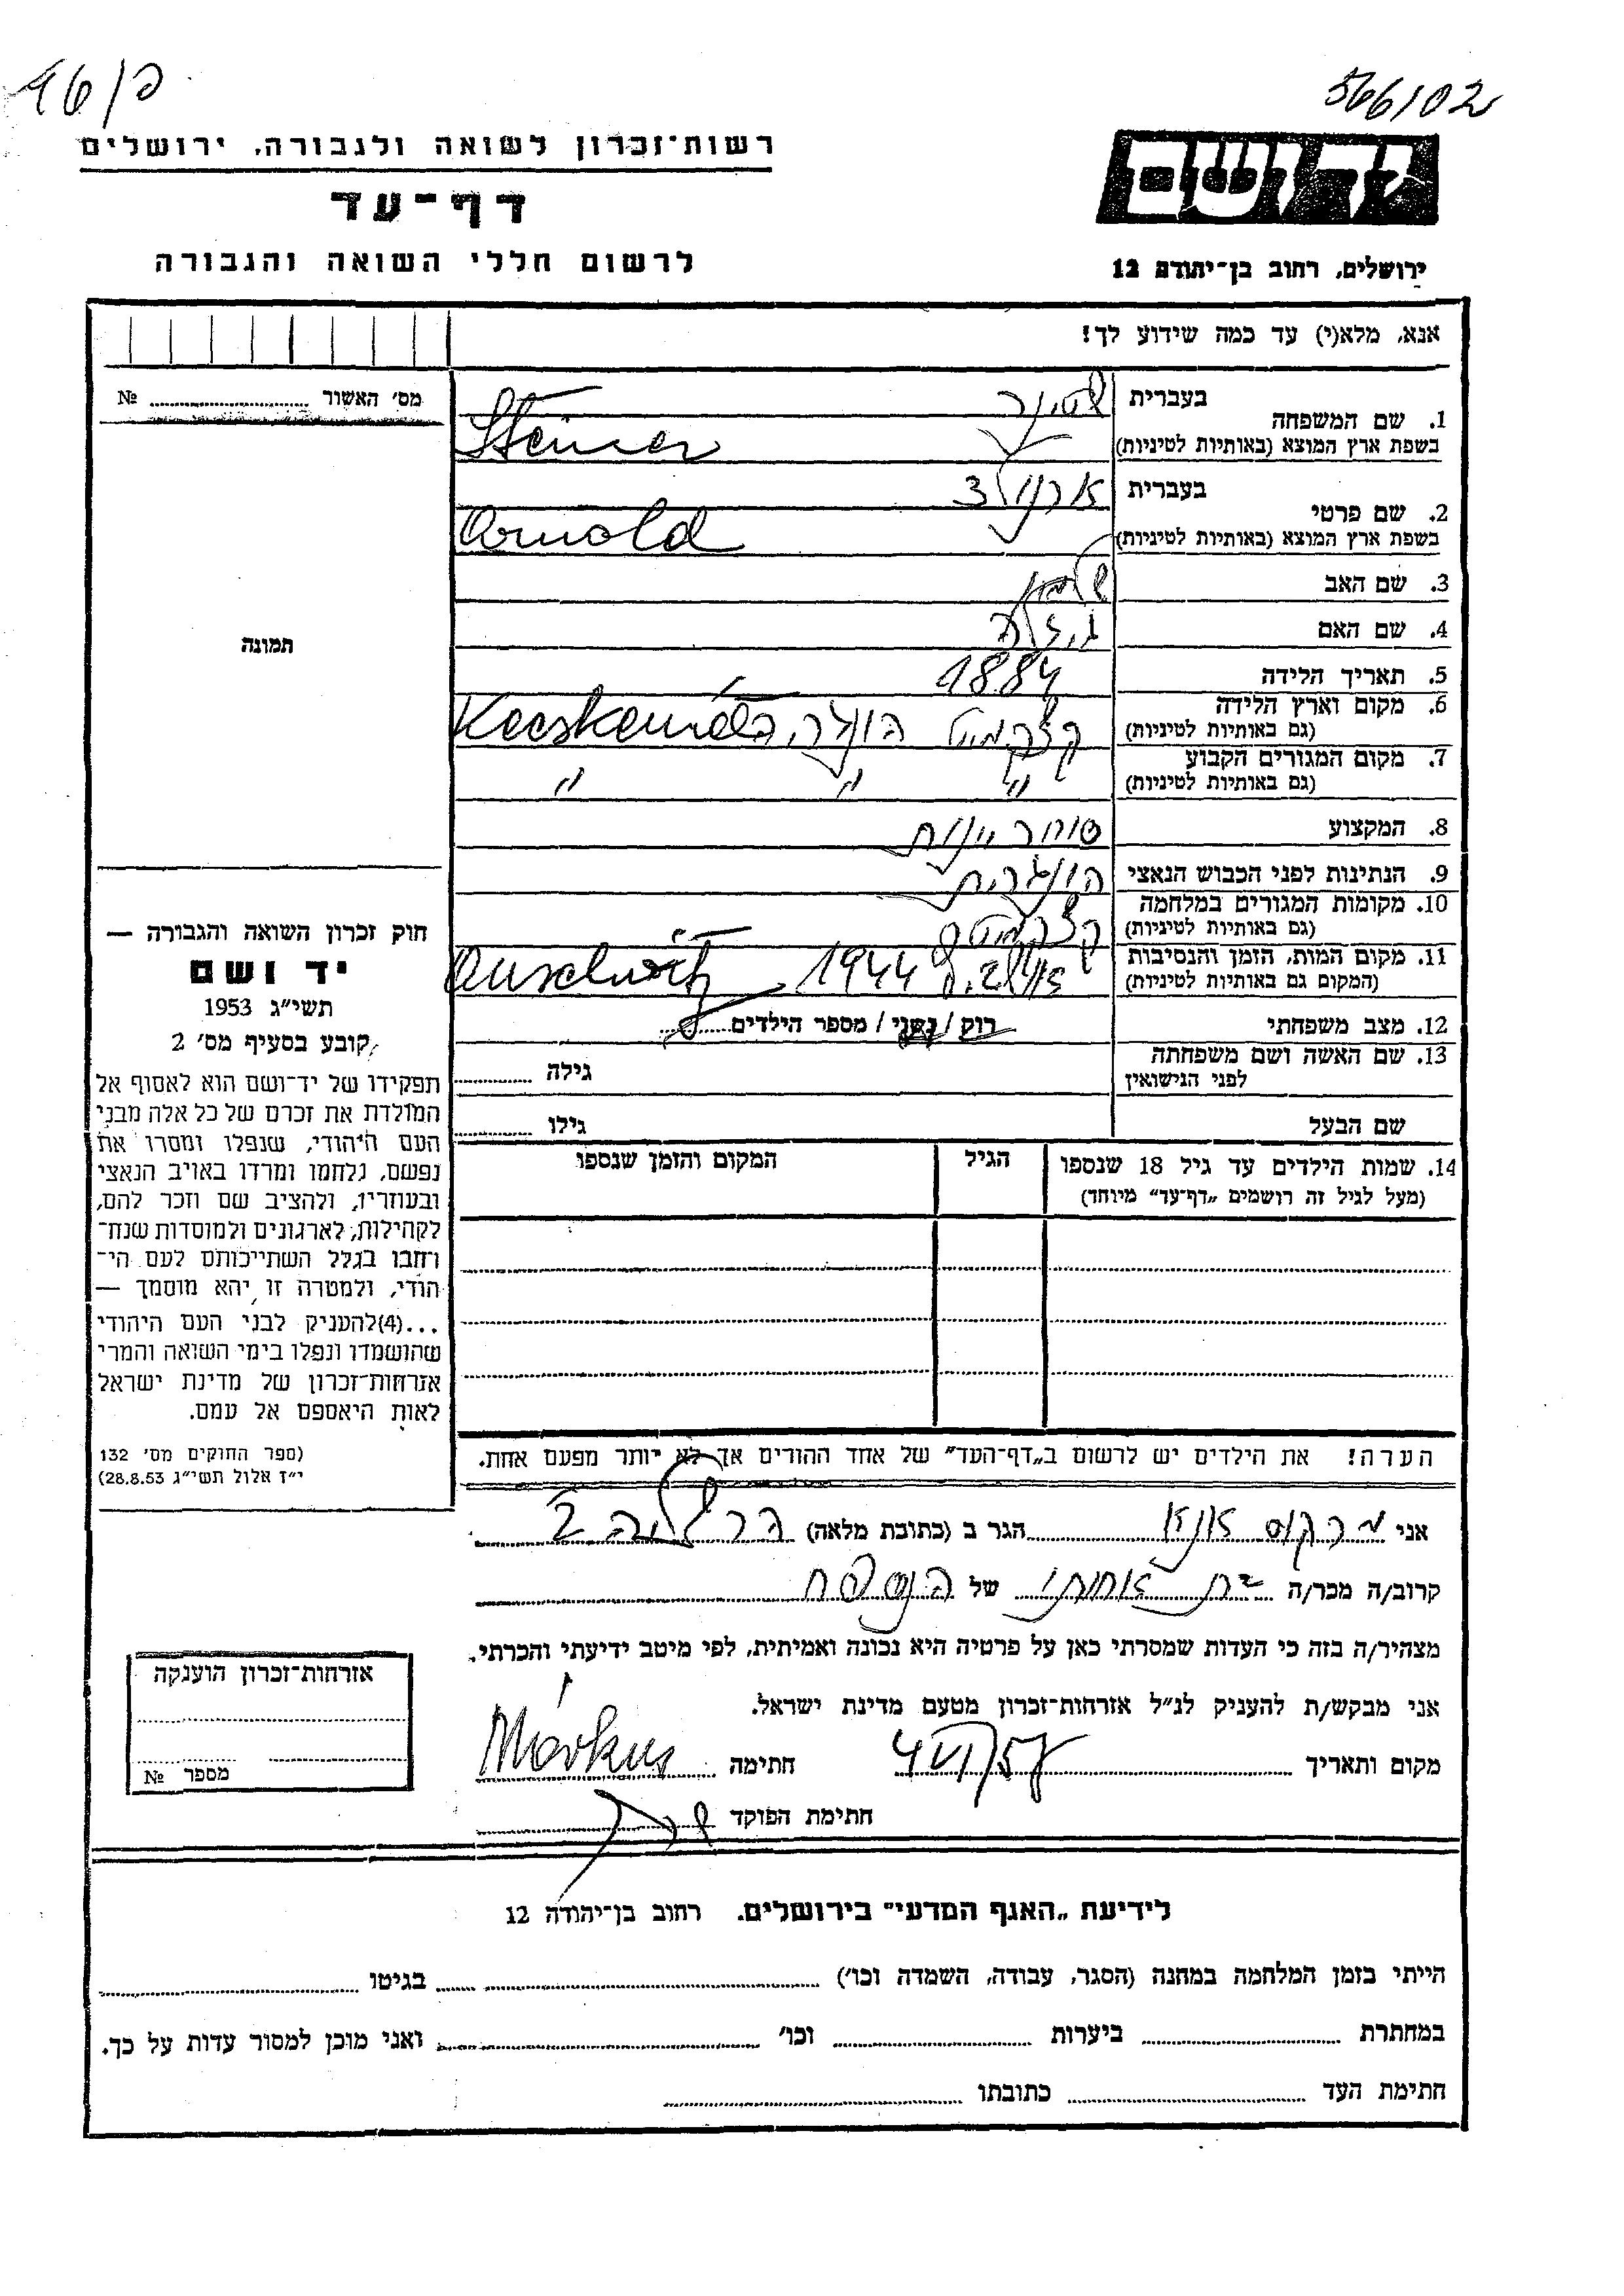 פ/46
566/02
רשות־זכרון לשואה ולגבורה, ירושלים
דף־עד
לרשום חללי השואה והגבורה
יד ושם
ירושלים, רחוב בן־יהודה 12
אנא, מלא(י) עד כמה שידוע לך!
מס׳ האשור №
תמונה
1. שם המשפחה
בעברית שטינר
בשפת ארץ המוצא (באותיות לטיניות) Steiner
2. שם פרטי
בעברית ארנולד
בשפת ארץ המוצא (באותיות לטיניות) Arnold
3. שם האב
4. שם האם
5. תאריך הלידה 1884
6. מקום וארץ הלידה
(גם באותיות לטיניות) קצ'קמיט הונגריה Kecskemét
7. מקום המגורים הקבוע
(גם באותיות לטיניות) " " "
8. המקצוע סוחר יינות
9. הנתינות לפני הכבוש הנאצי הונגרית
10. מקומות המגורים במלחמה
(גם באותיות לטיניות) קצ'קמיט
11. מקום המות, הזמן והנסיבות
(המקום גם באותיות לטיניות) 1944 Auschwitz
12. מצב משפחתי רוק / נשוי / מספר הילדים
13. שם האשה ושם משפחתה
לפני הנישואין גילה
שם הבעל גילו
14. שמות הילדים עד גיל 18 שנספו
(מעל לגיל זה רושמים „דף־עד" מיוחד)
הגיל
המקום והזמן שנספו
חוק זכרון השואה והגבורה —
יד ושם
תשי״ג 1953
קובע בסעיף מס׳ 2
תפקידו של יד־ושם הוא לאסוף אל
המולדת את זכרם של כל אלה מבני
העם היהודי, שנפלו ומסרו את
נפשם, נלחמו ומרדו באויב הנאצי
ובעוזריו, ולהציב שם וזכר להם,
לקהילות, לארגונים ולמוסדות שנח־
רחבו בגלל השתייכותם לעם הי־
הודי, ולמטרה זו יהא מוסמך —
...(4)להעניק לבני העם היהודי
שהושמדו ונפלו בימי השואה והמרי
אזרחות־זכרון של מדינת ישראל
לאות היאספם אל עמם.
(ספר החוקים מס׳ 132
י״ז אלול תשי״ג 28.8.53)
הערה! את הילדים יש לרשום ב„דף־העד" של אחד ההורים אך לא יותר מפעם אחת.
אני מרקוס אנא הגר ב (כתובת מלאה)
קרוב/ה מכר/ה בת אחותו של הנספה
מצהיר/ה בזה כי העדות שמסרתי כאן על פרטיה היא נכונה ואמיתית, לפי מיטב ידיעתי והכרתי.
אני מבקש/ת להעניק לנ״ל אזרחות־זכרון מטעם מדינת ישראל.
מקום ותאריך 4 VI/57 חתימה Márkus
חתימת הפוקד
אזרחות־זכרון הוענקה
מספר №
לידיעת „האגף המדעי" בירושלים. רחוב בן־יהודה 12
הייתי בזמן המלחמה במחנה (הסגר, עבודה, השמדה וכו׳) בגיטו
במחתרת ביערות וכו׳ ואני מוכן למסור עדות על כך.
חתימת העד כתובתו